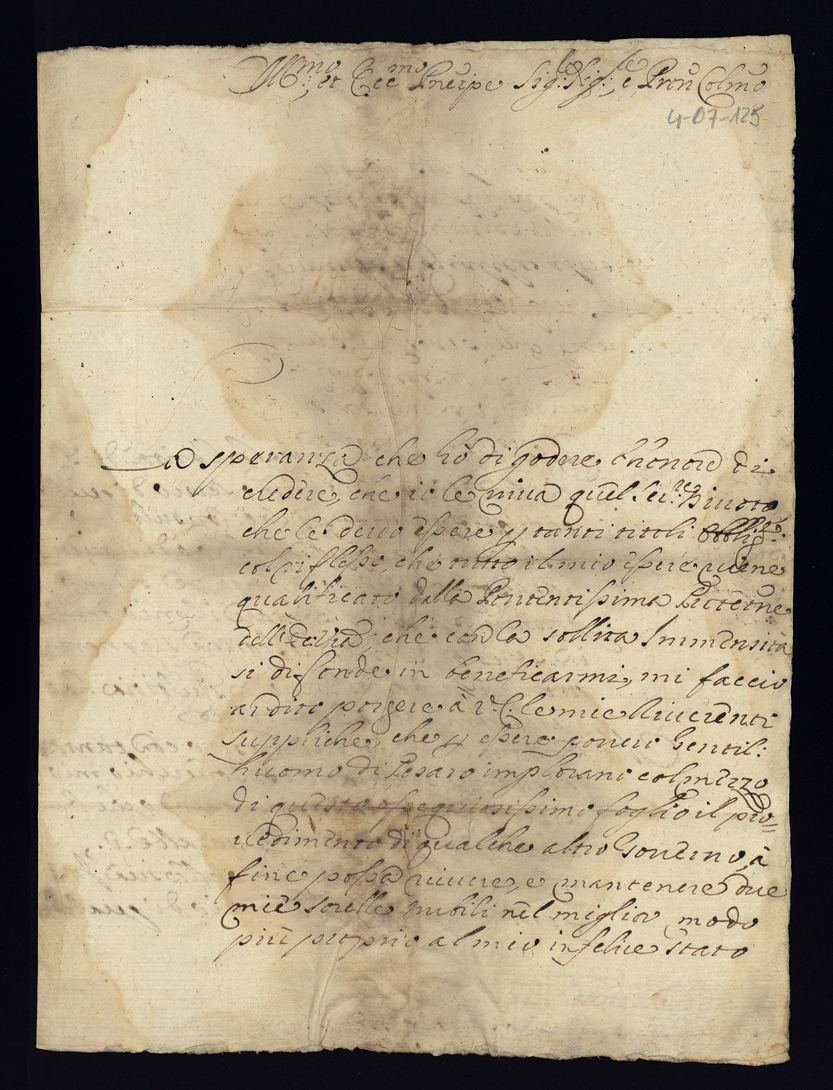 Ill:mo et Ecc:mo Prencipe Sig:r Sig:re, e Pron Colmo
4-07-125
La speranza che hò di godere l'honore di
credere, che io le viva quel Ser:re Divoto
che le devo essere p tanti titoli Obblig:to
col riflesso, che tutto il mio essere viene
qualificato dalla Protettione
che con la sollita Immensità
si difonde in beneficarmi, mi faccio
ardito porgere à V:E: le mie Riverenti
suppliche, che p essere povero Gentil:
huomo di Pesaro implorano col mezzo
di questo ossequiosissimo foglio il pro=
vedimento di qualche altro Governo, à
fine possa vivere, e mantenere due
mie sorelle nubili nel miglior modo
più proprio al mio infelice stato